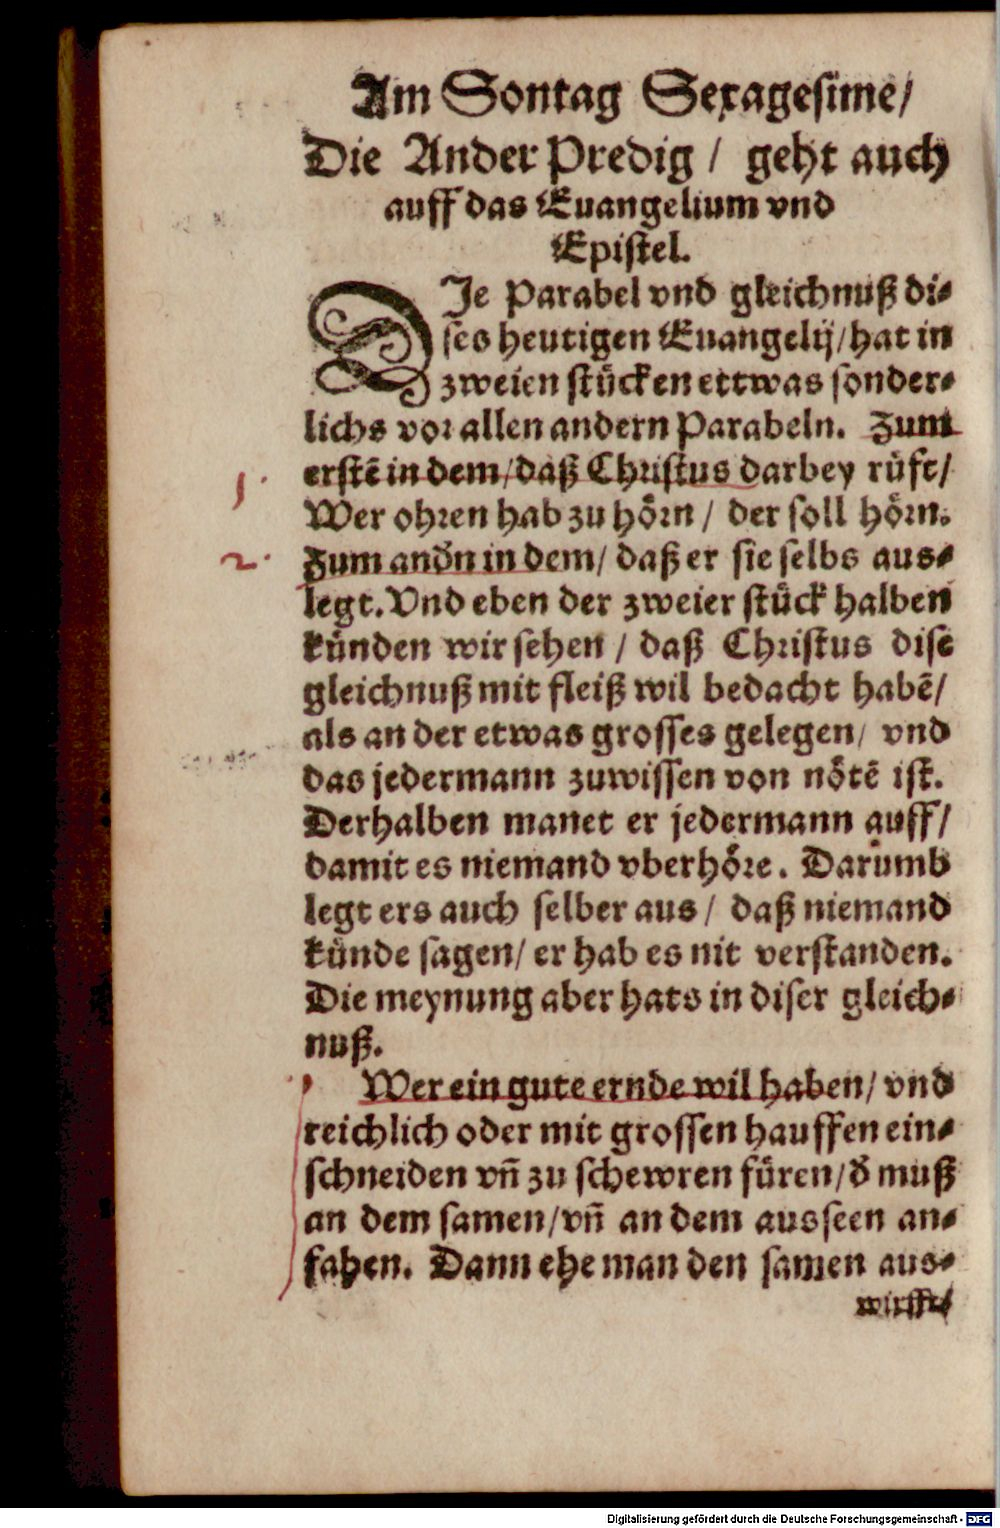 Am Sontag Sexagesime/
Die Ander Predig / geht auch
auff das Euangelium vnd
Epistel.
DJe Parabel vnd gleichnuß di-
ses heutigen Euangelij/hat in
zweien stücken ettwas sonder-
lichs vor allen andern Parabeln. Zum
erstē in dem/daß Christus darbey rüft/
1.
Wer ohren hab zu hörn / der soll hörn.
2.
Zum anđn in dem/ daß er sie selbs aus-
legt. Vnd eben der zweier stück halben
künden wir sehen / daß Christus dise
gleichnuß mit fleiß wil bedacht habē/
als an der etwas grosses gelegen/ vnd
das jedermann zuwissen von nötē ist.
Derhalben manet er jedermann auff/
damit es niemand vberhöre. Darumb
legt ers auch selber aus / daß niemand
künde sagen/ er hab es nit verstanden.
Die meynung aber hats in diser gleich-
nuß.
Wer ein gute ernde wil haben/ vnd
reichlich oder mit grossen hauffen ein-
schneiden vn̄ zu schewren füren/đ muß
an dem samen/vn̄ an dem ausseen an-
fahen. Dann ehe man den samen aus-
wirfft/
Digitalisierung gefördert durch die Deutsche Forschungsgemeinschaft - DFG